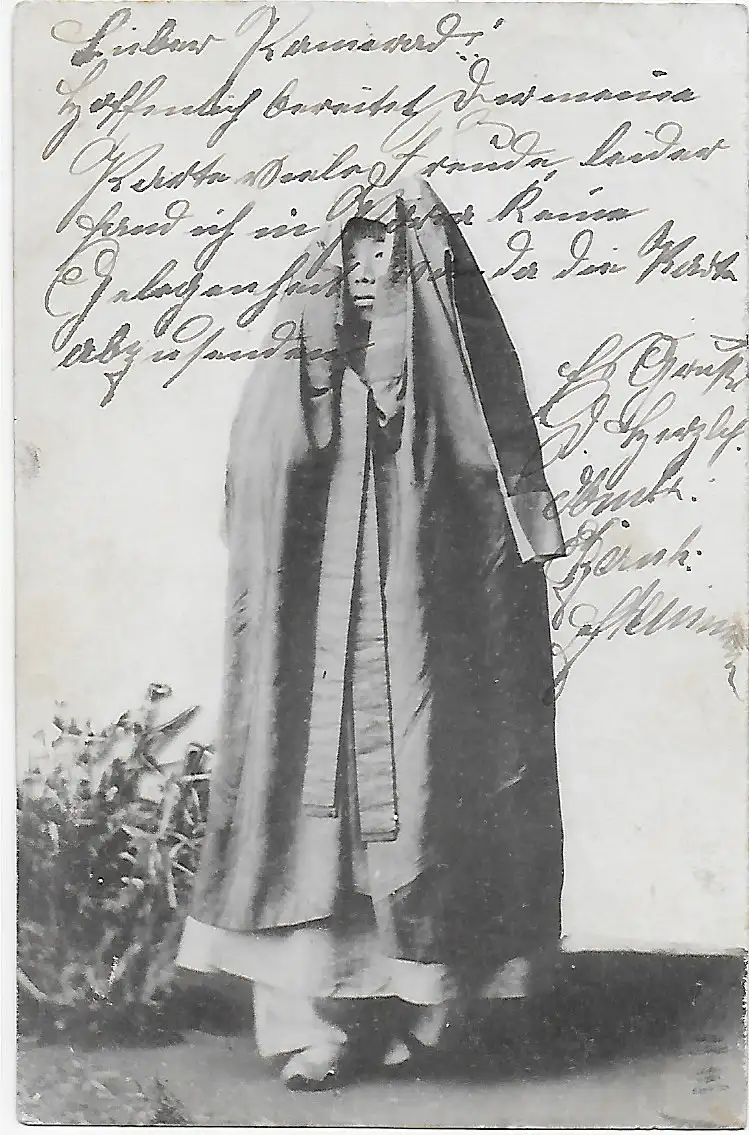 Lieber Kamerad!
Hoffenlich bereitet Dir meine
Karte viele Freude, leider
fand ich in keine
Gelegenheit von da die Karte
abzusenden
Es Grüßt
D. Herzlch.